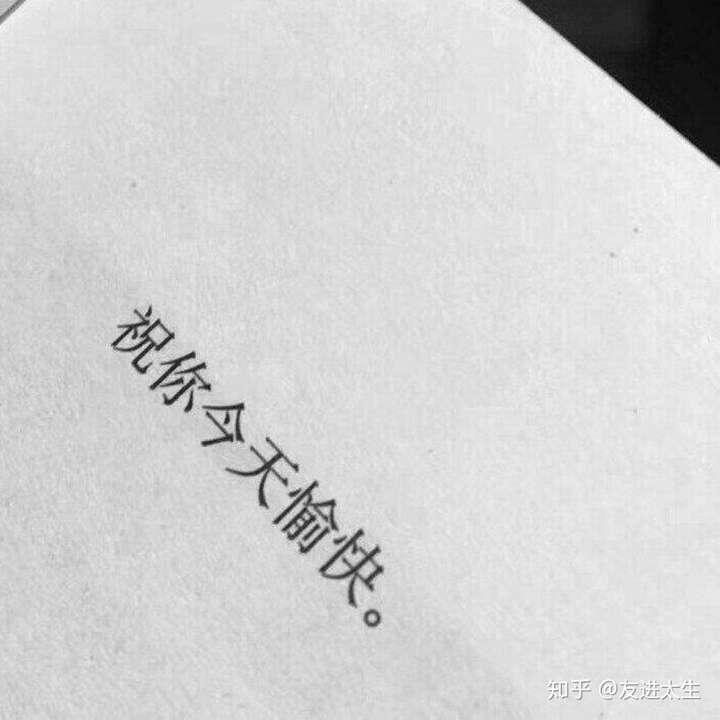 祝你今天愉快。
知乎 @友进太生